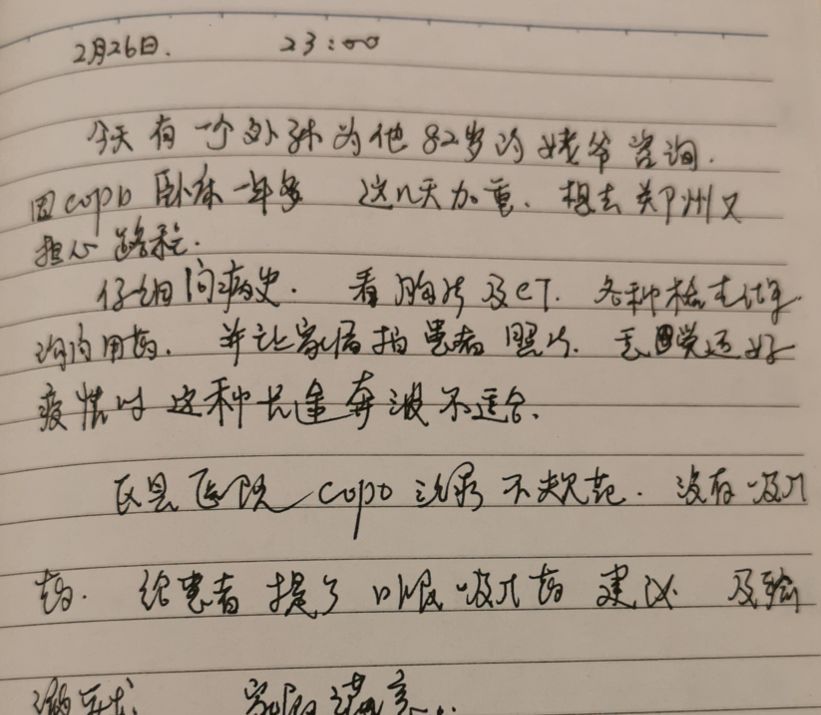 2月26日. 23:00
今天有一个外孙为他82岁的姥爷咨询.
因copd卧床一年多 这几天加重. 想去郑州又
担心路程.
仔细问病史. 看胸片及CT. 各种检查
用药. 并让家属拍患者照片. 还好
疫情时这种长途奔波不适合.
区县医院copd 不规范. 没有吸入
药. 给患者提了口服吸入药建议 及输
家属满意..